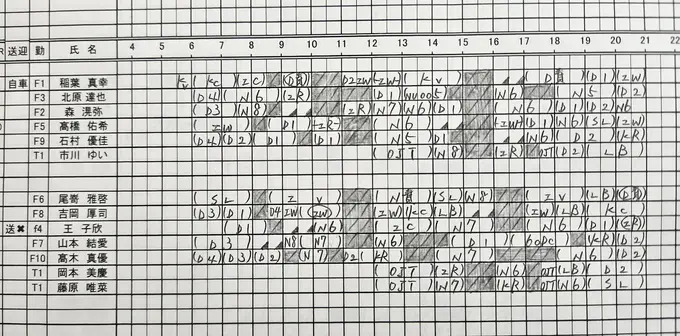 R 送迎 勤 氏 名 4 5 6 7 8 9 10 11 12 13 14 15 16 17 18 19 20 21 22
自車 F1 稲葉 真幸 Kv (KC) (IC) D2 IW (KV) (D1) (IW)
F3 北原 達也 (D4) (N6) (IR) (D1) (NU005) (N6) (N5) (D2)
F2 森 滉弥 (D3) (N8) (IR) (N7) (N6) (D1) (N6) (D1) (D2) N6
F5 高橋 佑希 (IW) (D1) (IR) (N6) (IW) (D1) (N6) (SL) (IW)
F9 石村 優佳 (D4) (D2) (D1) (D1) (N5) (D1) (N6) (D2) (KR)
T1 市川 ゆい (OJT) (N8) (IR) OJT (D2) (LB)
F6 尾嵜 雅啓 (SL) (I V) (SL) N8 (IV) (LB)
F8 吉岡 厚司 (D3) (D1) D4 IW (IW) (IW) (KC) (LB) (IW) (LB) (KC)
送✖ f4 王 子欣 (D1) (N6) (IC) (N7) (N6) (D1) (IR)
F7 山本 結愛 (D3) N8 (N7) (N6) (D1) (60DC) (KR) (D2)
F10 高木 真優 (D4) (D3) (D2) (N7) D2 (KR) (N7) (N6) (D2)
T1 岡本 美慶 (OJT) (IR) (N6) OJT (LB) (D2)
T1 藤原 唯菜 (OJT) (N7) (KR) OJT (N6) (SL)